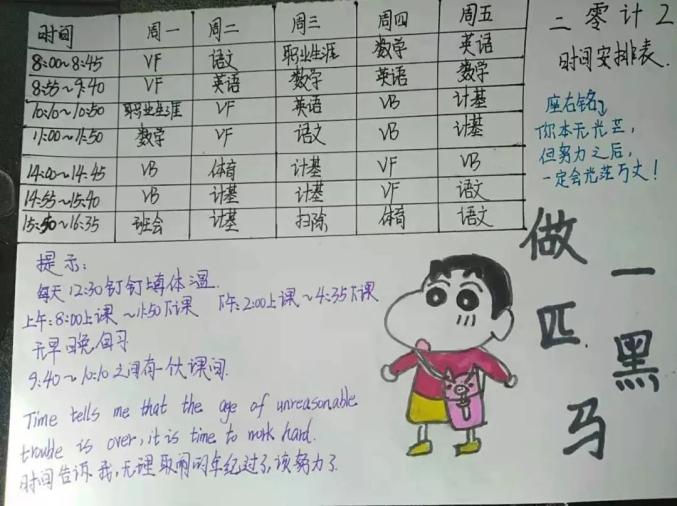 时间 周一 周二 周三 周四 周五
8:00~8:45 VF 语文 职业生涯 数学 英语
8:55~9:40 VF 英语 数学 英语 数学
10:10~10:50 职业生涯 VF 英语 VB 计基
11:00~11:50 数学 VF 语文 VB 计基
14:00~14:45 VB 体育 计基 VF VB
14:55~15:40 VB 计基 计基 VF 语文
15:50~16:35 班会 计基 扫除 体育 语文
二零计2
时间安排表.
座右铭
你本无光芒,
但努力之后,
一定会光茫万丈!
做一匹黑马
提示:
每天12:30钉钉填体温.
上午:8:00上课~11:50下课 下午:2:00上课~4:35下课
无早晚自习
9:40~10:10之间有一伙课间.
Time tells me that the age of unreasonable
trouble is over, it is time to work hard.
时间告诉我,无理取闹的年纪过了,该努力了.